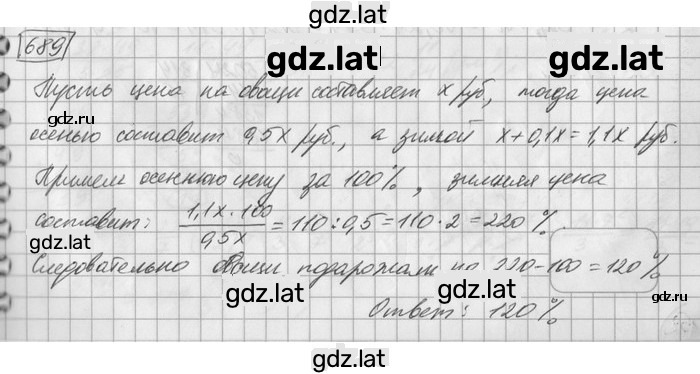 gdz.lat
gdz.lat
689
gdz.lat
gdz.lat
Пусть цена на овощи составляет x руб, тогда цена
gdz.lat
осенью составит 0,5x руб., а зимой x+0,1x=1,1x руб.
Примем осеннюю цену за 100%, зимняя цена
составит: 1,1x·100/0,5x = 110:0,5=110·2=220%.
gdz.lat
Следовательно овощи подорожали на 220-100=120%
gdz.lat
gdz.lat
gdz.lat
Ответ: 120%
gdz.lat